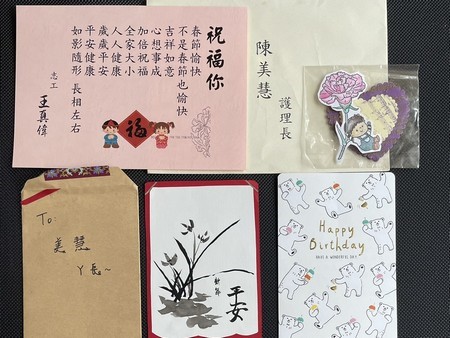 祝福你
春節愉快
不是春節也愉快
吉祥如意
心想事成
加倍祝福
全家大小
人人健康
歲歲平安
平安健康
如影隨形 長相左右
志工
王真偉
福
陳美慧
護理長
To:
美慧
丫長~
平安
Happy
Birthday
HAVE A WONDERFUL DAY